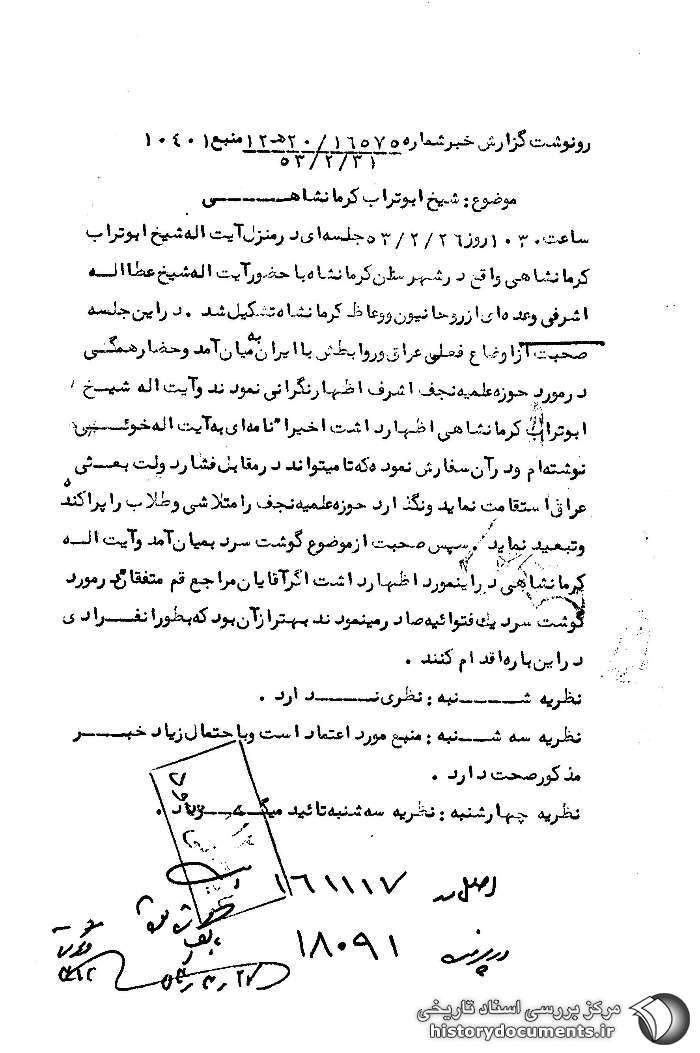 رونوشت گزارش خبر شماره ۱۶۵۷۵/۲۰هـ۱۲ منبع ۱۰۴۰۱
۵۳/۲/۳۱
موضوع : شیخ ابوتراب کرمانشاهــی
ساعت ۱۰۳۰ روز ۵۳/۲/۲۶ جلسه‌ای در منزل آیت اله شیخ ابوتراب
کرمانشاهی واقع در شهرستان کرمانشاه با حضور آیت اله شیخ عطا الـه
اشرفی و عده‌ای از روحانیون و وعاظ کرمانشاه تشکیل شد . در این جلسه
صحبت از اوضاع فعلی عراق و روابطش با ایران به میان آمد و حضار همگــی
در مورد حوزه علمیه نجف اشرف اظهار نگرانی نمودند و آیت اله شیــخ
ابوتراب کرمانشاهی اظهار داشت اخیرا" نامه‌ای به آیت اله خوئــی
نوشته‌ام و در آن سفارش نموده که تا میتواند در مقابل فشار دولت بعــثی
عراق استقامت نماید و نگذارد حوزه علمیه نجف را متلاشی و طلاب را پراکنده
و تبعید نماید . سپس صحبت از موضوع گوشت سرد بمیان آمد و آیت الـه
کرمانشاهی در اینمورد اظهار داشت اگر آقایان مراجع قم متفقا" در مورد
گوشت سرد یک فتوائیه صادر مینمودند بهتر از آن بود که بطور انفــرادی
در این باره اقدام کنند .
نظریه شــنبه : نظری نــدارد .
نظریه سه شــنبه : منبع مورد اعتماد است و باحتمال زیاد خبــر
مذکور صحت دارد .
نظریه چهارشنبه : نظریه سه شنبه تائید میگــردد .
اصل در ۱۶۱۱۱۷
در پرونده ۱۸۰۹۱
مرکز بررسی اسناد تاریخی
historydocuments.ir